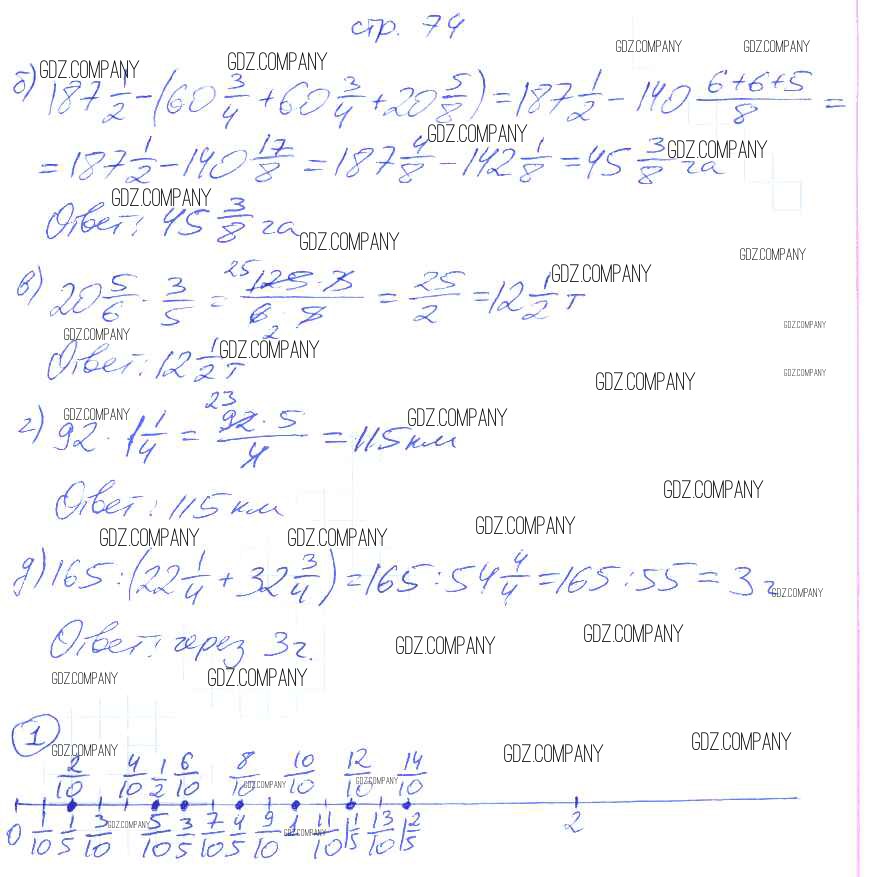 стр. 74
б) 187 1/2 - (60 3/4 + 60 3/4 + 20 5/8) = 187 1/2 - 140 (6+6+5)/8 =
= 187 1/2 - 140 17/8 = 187 4/8 - 142 1/8 = 45 3/8 га
Ответ: 45 3/8 га
в) 20 5/6 · 3/5 = (25 125 · 3)/(6 · 5 2) = 25/2 = 12 1/2 т
Ответ: 12 1/2 т
г) 92 · 1 1/4 = (23 92 · 5)/4 = 115 км
Ответ: 115 км
д) 165 : (22 1/4 + 32 3/4) = 165 : 54 4/4 = 165 : 55 = 3 г
Ответ: через 3 г.
1
2/10 4/10 1/2 6/10 8/10 10/10 12/10 14/10
0 1/10 1/5 3/10 5/10 3/5 7/10 4/5 9/10 1 11/10 1 1/5 13/10 1 2/5 2
GDZ.COMPANY